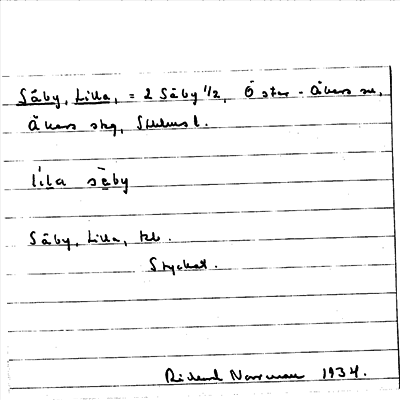 Säby, Lilla, = 2 Säby 1/2, Öster-Åkers sn,
Åkers skg, Sthlms l.
lila sèby
Säby, Lilla, tb.
Styckat.
Rickard Norrman 1934.